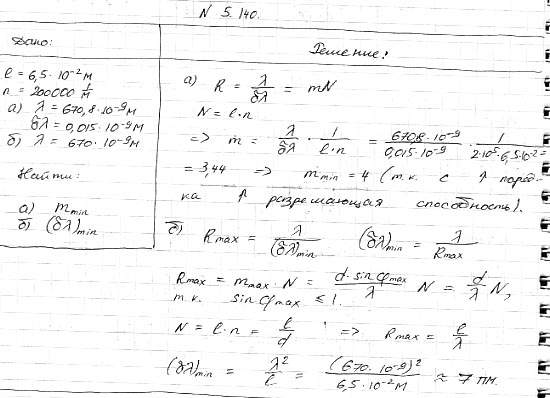 N 5.140.
Дано:
l = 6,5·10⁻² м
n = 200000 1/м
а) λ = 670,8·10⁻⁹ м
δλ = 0,015·10⁻⁹ м
б) λ = 670·10⁻⁹ м
Найти:
а) m min
б) (δλ)min
Решение:
а) R = λ/δλ = mN
N = l·n
=> m = λ/δλ · 1/(l·n) = 670,8·10⁻⁹/0,015·10⁻⁹ · 1/(2·10⁵·6,5·10⁻²) =
= 3,44 => m min = 4 (т.к. с ↑ поряд-
ка ↑ разрешающая способность).
б) R max = λ/(δλ)min (δλ)min = λ/R max
R max = m max · N = d·sin φ max/λ N = d/λ N,
т.к. sin φ max ≤ 1.
N = l·n = l/d => R max = l/λ
(δλ)min = λ²/l = (670·10⁻⁹)²/6,5·10⁻² м ≈ 7 пм.